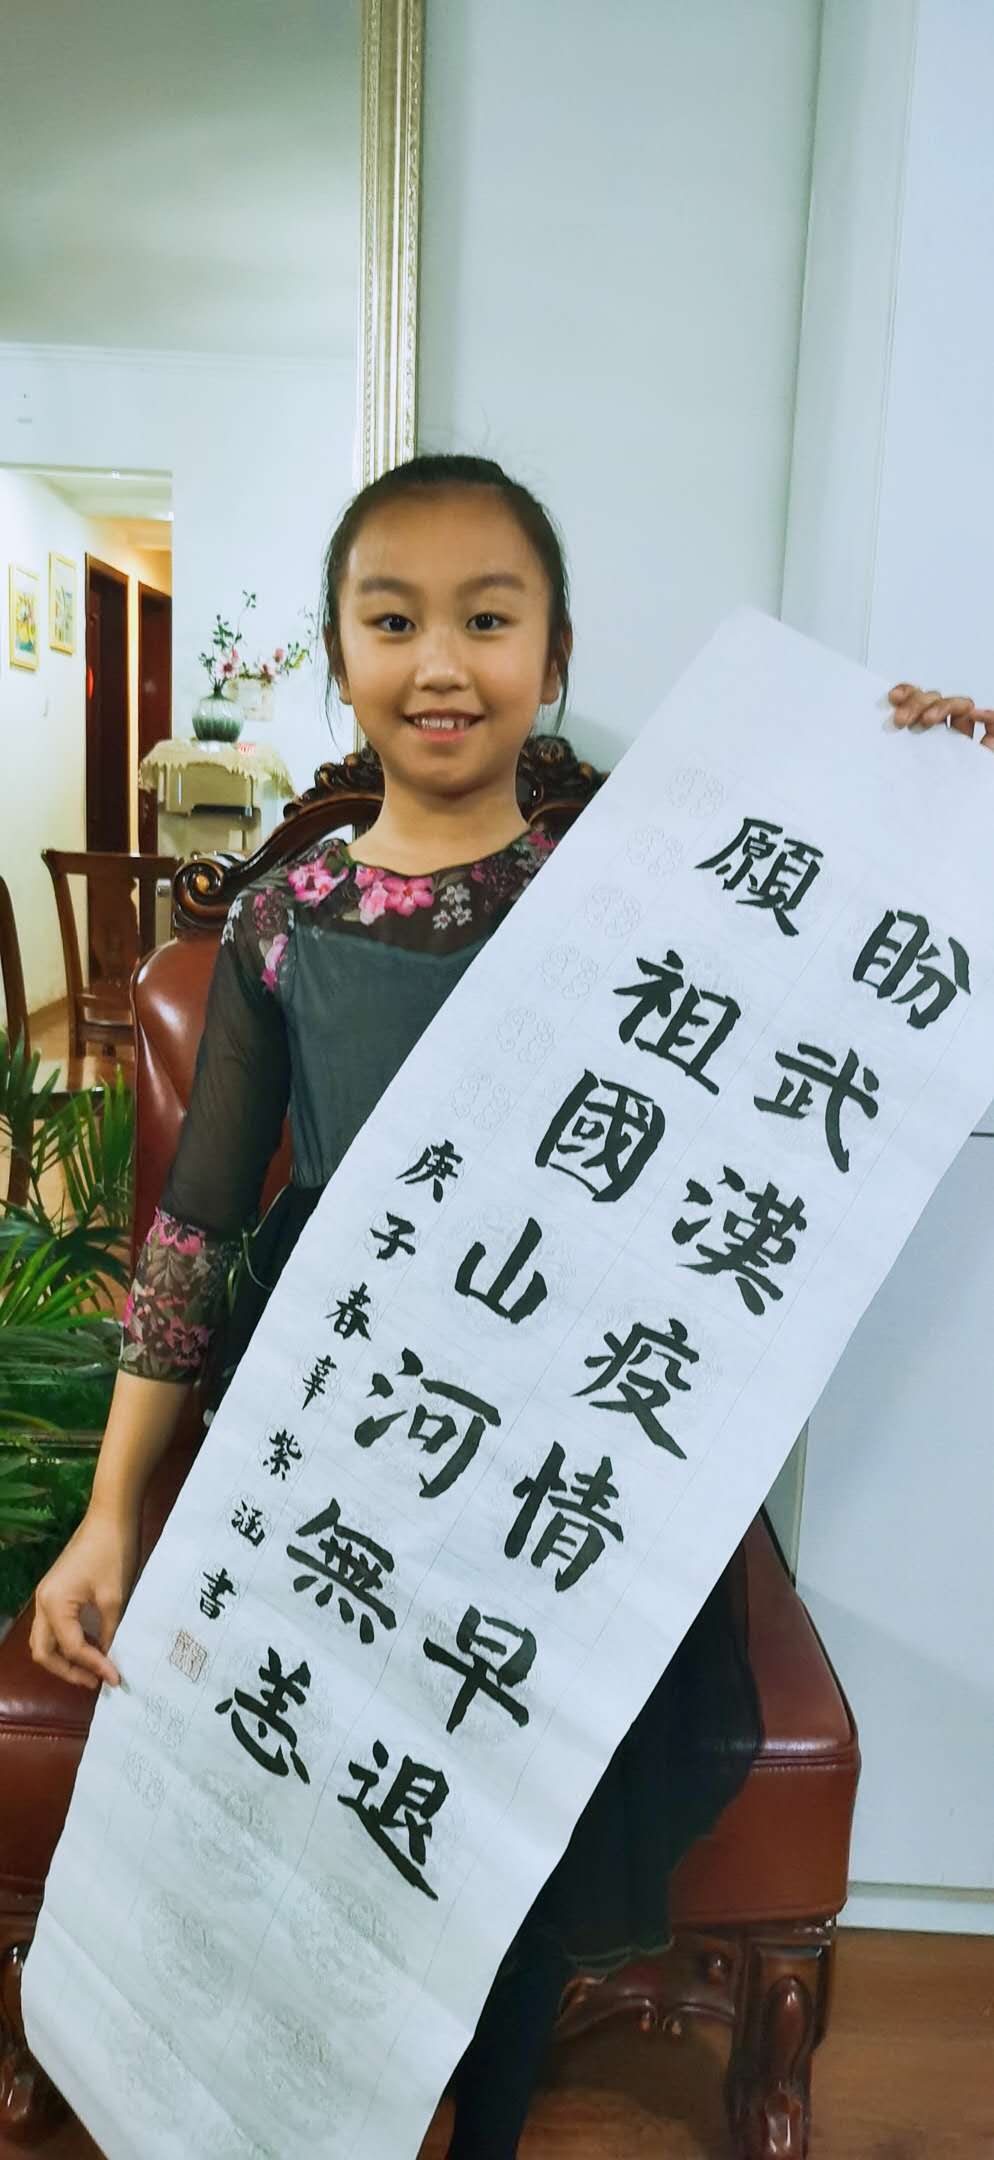 盼武漢疫情早退
願祖國山河無恙
庚子春辜紫涵書